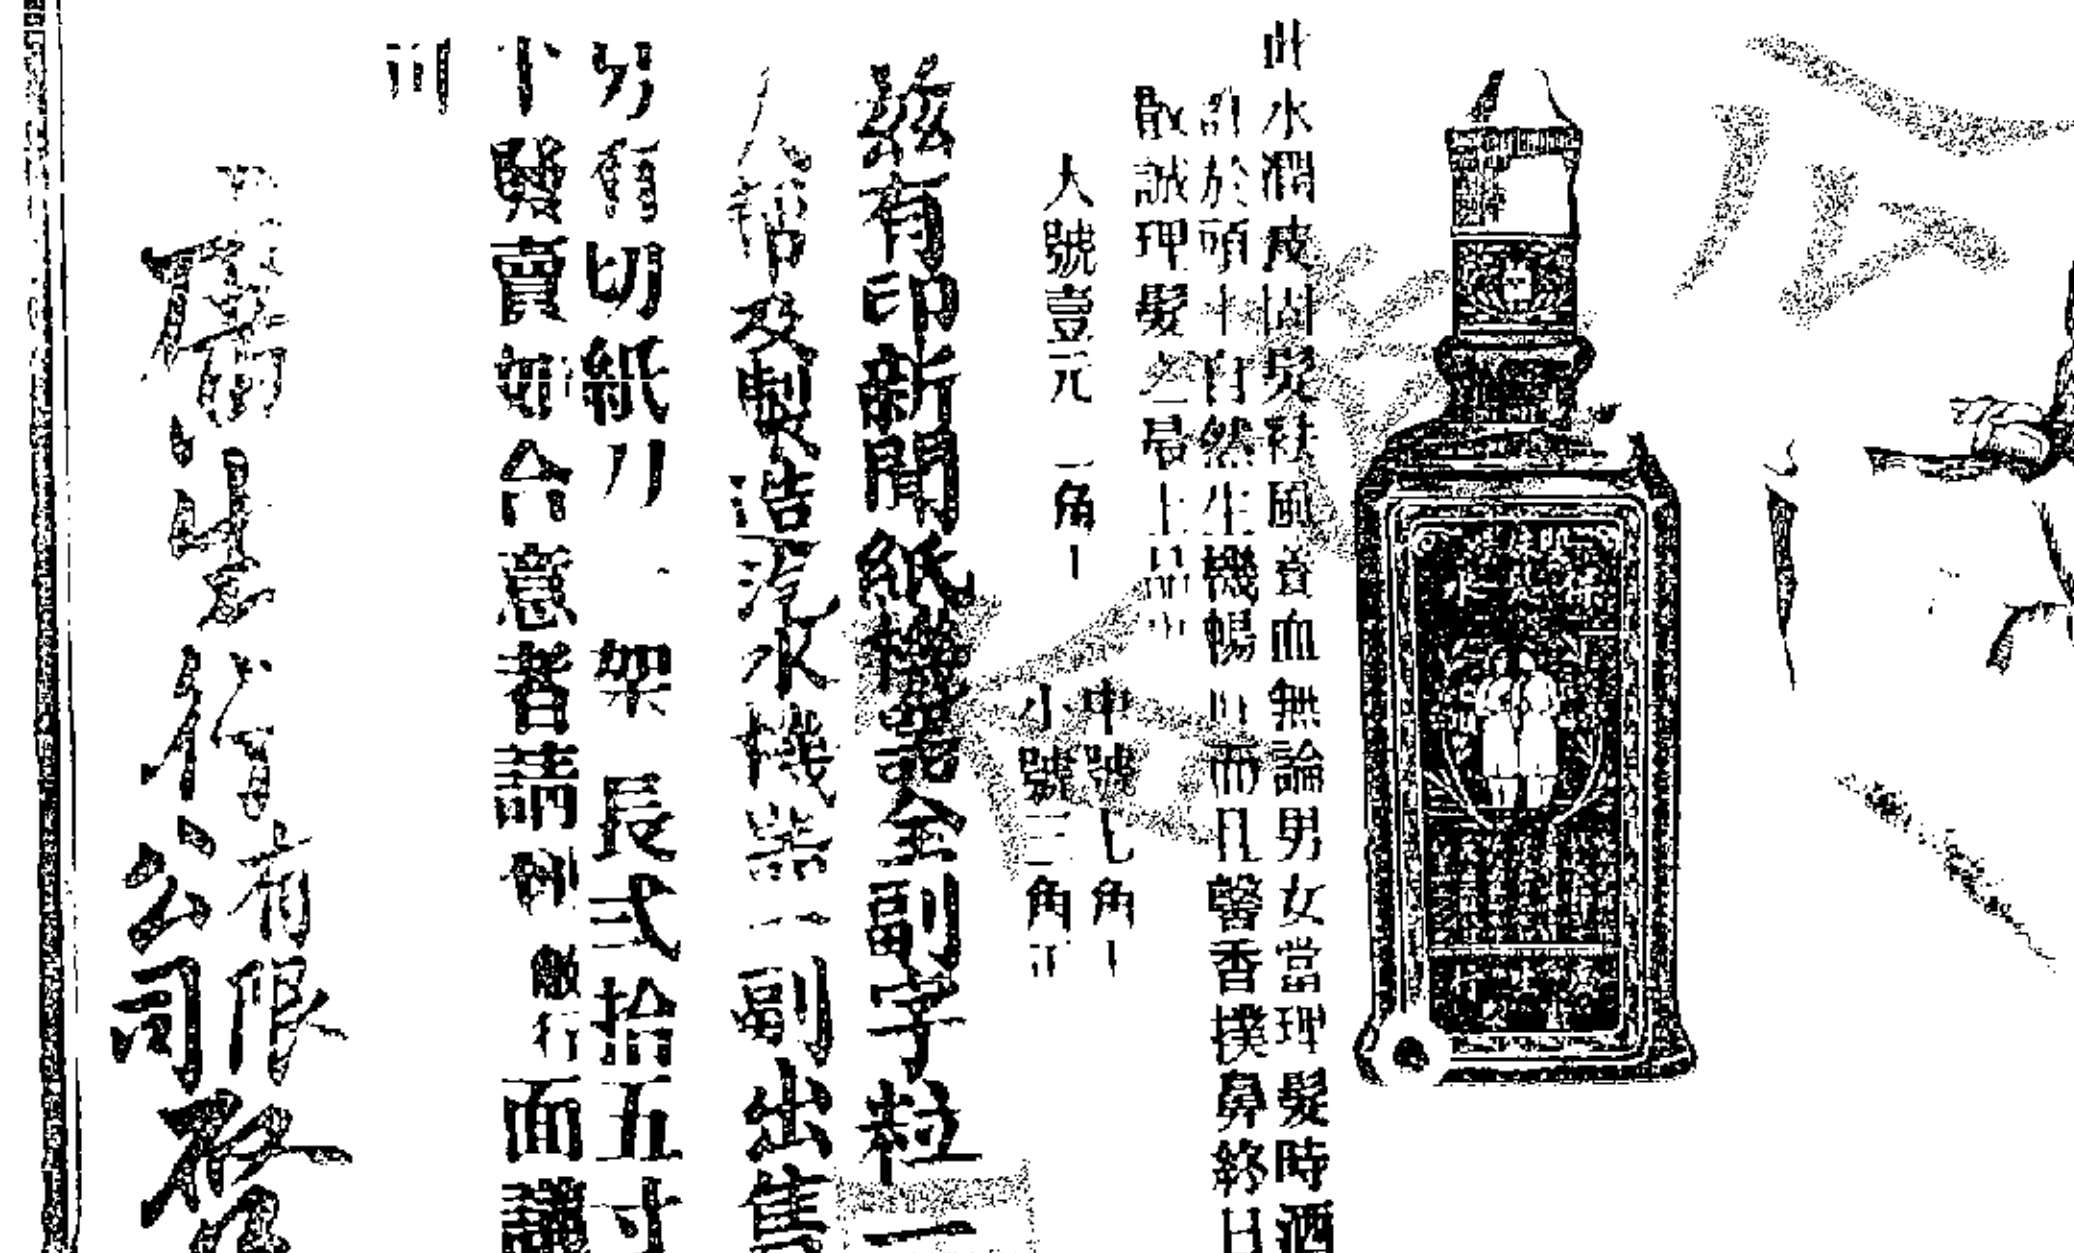 此水潤皮固髮袪風養血無論男女當理髮時酒
許於頭上自然生機暢旺而且馨香撲鼻終日
散誠理髮之最上品也
大號壹元二角
中號七角
小號三角
茲有印新聞紙機器全副字粒一
及製造汽水機器一副出售
另有切紙刀一架長式拾五寸
賣如合意者請到敝行面議
可
廣生行有限公司啓